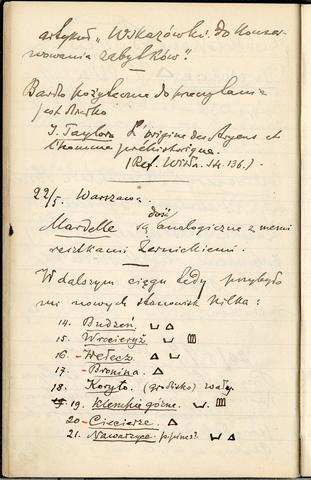 artykuł „Wskazówki do konser-
wowania zabytków".
Bardzo pożyteczne do przeczytania
jest dziełko
I. Taylora L'origine des Aryens et
l'homme préhistorique.
(Ref. Wisła. str. 136.)
22/5. Warszawa.
Mardelle są dziś analogiczne z memi
Żernickiemi.
W dalszym ciągu kedy przybyło
mi nowych stanowisk kilka:
14. Budzeń.
15. Wrocieryż
16 - Wełecz.
17. - Bronina.
18. Koryto. (grodzisko) wały.
19. Klempie górne.
20 - Ciecierze.
21. Nawarzyce